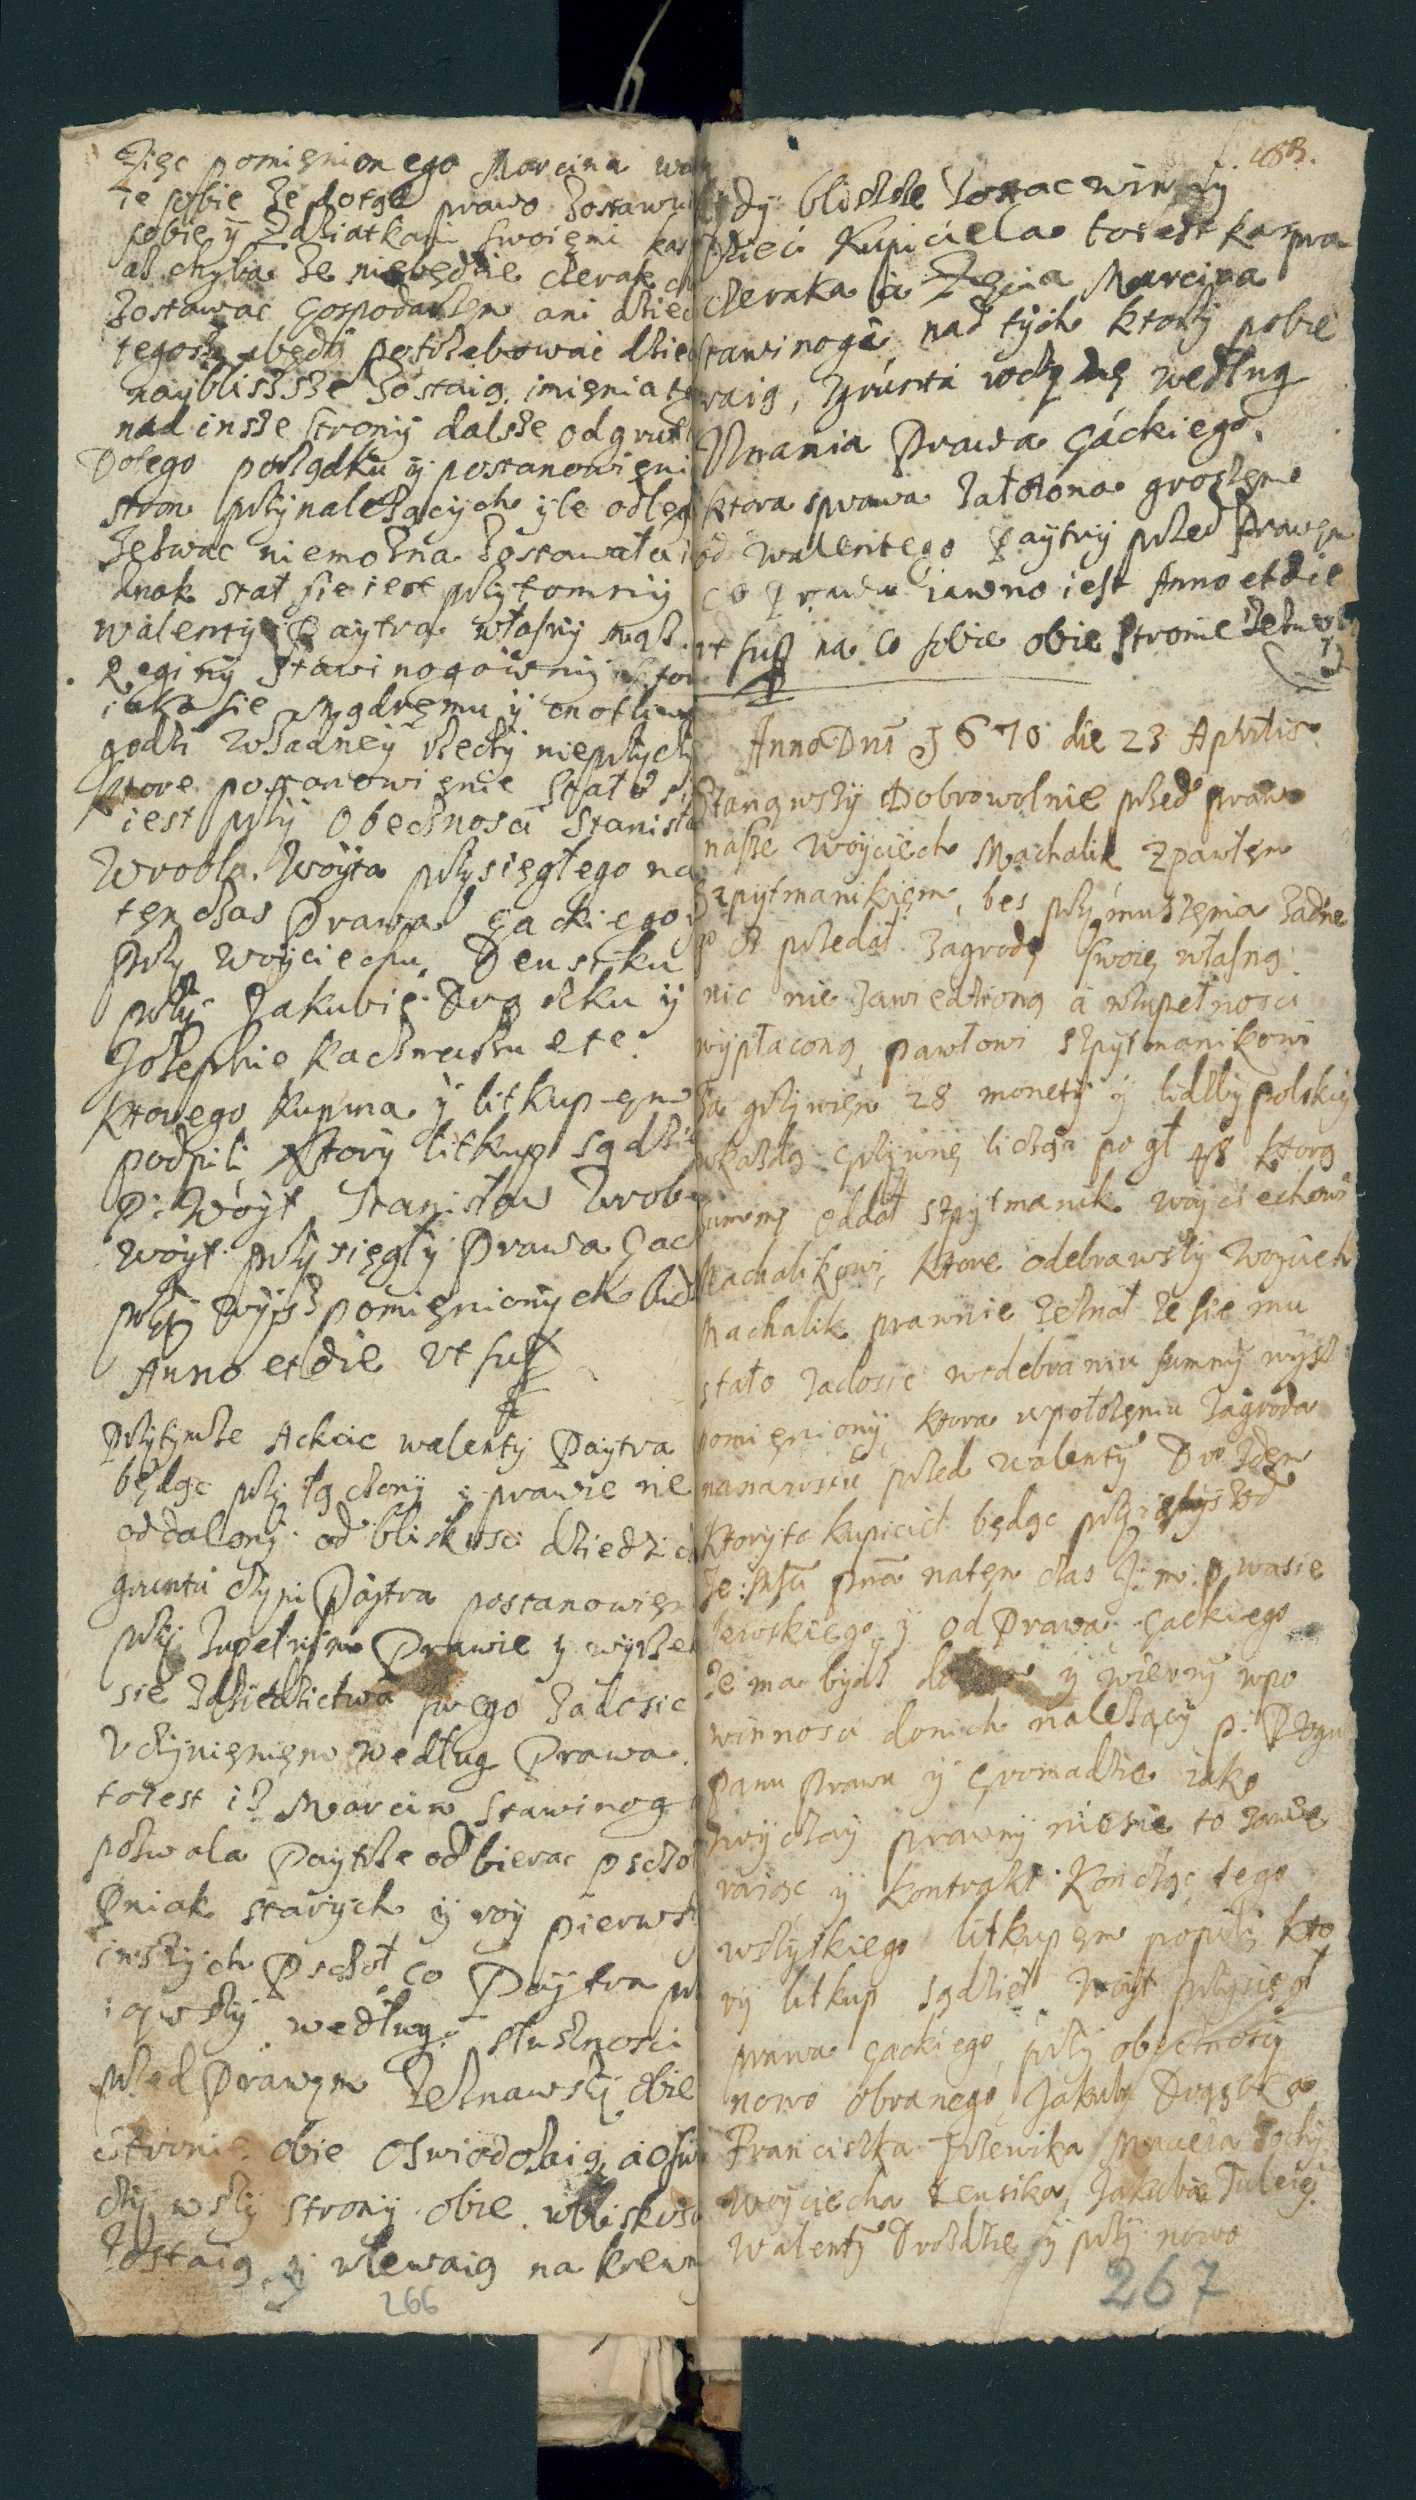 Zięc pomięnionego Marcina
ie sobie że dotgd prawo zostawu
sobie y Zdziatkami swoięmi
aż chyba że niebędzie cierak
zostawac gospodarzem ani dziec
tegoż będą potrzebowac dziec
naybliszsze zostaią imięnia
nad insze strony dalsze od grunt
Dotego porządku y postanowięni
stron przynależących yle odleg
Zeżwac niemożna zostawała i
dnak stał sie iest przytomny
walenty Paytra własny mąż
Reginy Stawinogowny
iako sie mądremu y cnotliw
godzi wżadney rzeczy nieprzecz
Ktore postanowięnie stało si
iest przy Obecznosci Stanisła
Wrobla Woyta przysięgłego na
tęn czas Prawa Gackiego
Przy woyciechu Deusiku
przy Jakubie Drozdzku y
Jozephie Kaczmarzu etc
Ktorego kupna y litkup-ęm
podpili Ktory litkup sądził
P: Woyt Stanisław Wrobe
woyt przysięgły Prawa Gac
przy wyysz pomięnionych lud
Anno et die ut sup
Przytymże Akcie walenty Paytra
będąc przy łączony i prawie nie
oddalony od bliskosci dziedzic
gruntu czyni Paytra postanowięn
przy Zupełnym Prawie y wyrze
sie zdziedzictwa swego Zadosic
Uczynięnięm według Prawa
toiest iż Marcin Stawinog
pozwala Paytrze odbierac pscżo
Pniak starych y roy pierwsz
inszych Psczoł co Paytra
iąwszy według słuszności
przed Prawęm Zeznawszy obie
Stronie obie Oswiadczaią
czywszy strony obie wbliskos
zostaią y wlewaią na krewn
266
183.
gdy blizsze zostac winny
dzieci Kupiciela toiest kaspra
cieraka a Zięcia Marcina
stawinoga nad tych ktorzy pobie
raią, zgrunta według
Uznania Prawa Gáckiego.
ktora sprawa założona groszęm
od walentego Paytry przed Prawęm
co Prawu iawno iest Anno et die
ut sup na co sobie obie stronie
Anno Dnī 1670 die 23 Aprilis
Stanąwszy Dobrowolnie przed prawo
nasze Woyciech Machalik z pawłęm
Szpytmanikięm, bes przymuszęnia żadne
go iż przedał Zagrodę swoię własną
nic nie zawiedzioną a wzupełnosci
wypłaconą pawłowi szpytmanikowi
za grzywięn 28 monety y lidzby polskiy
wkazdą grzywnę licząc po gł 48 ktorą
summę oddał Szpytmanik Woyciechowi
Machalikowi, Ktore odebrawszy Woyciech
Machalik prawnie zeznał że sie mu
stało zadosic wodebraniu summy wysz
pomięniony ktora wpołożęniu Zagroda
nanarosciu przed walenty Drozdęm
Ktoryto kupiciel będąc
natęn czas J: m: P wasie
lewskiego y od Prawa Gackiego
że ma bydz y wierny wpo
winnosci donich nalezący P: Bogu
Panu Prawu y Gromadzie iako
zwyczay prawny niesie to zawie
raiąc y Kontrakt Koncząc tego
wszytkiego litkupęm popili, kto
ry litkup sądzieł Woyt przysięgł
prawa Gackiego, przy obecznosci
nowo obranego Jakuba Drozdzka
Franciszka Jrzewika Macieia Sochy
Woyciecha Zeusika, Jakuba Tuleiei
Walenty Drozdzie y przy nowo
267